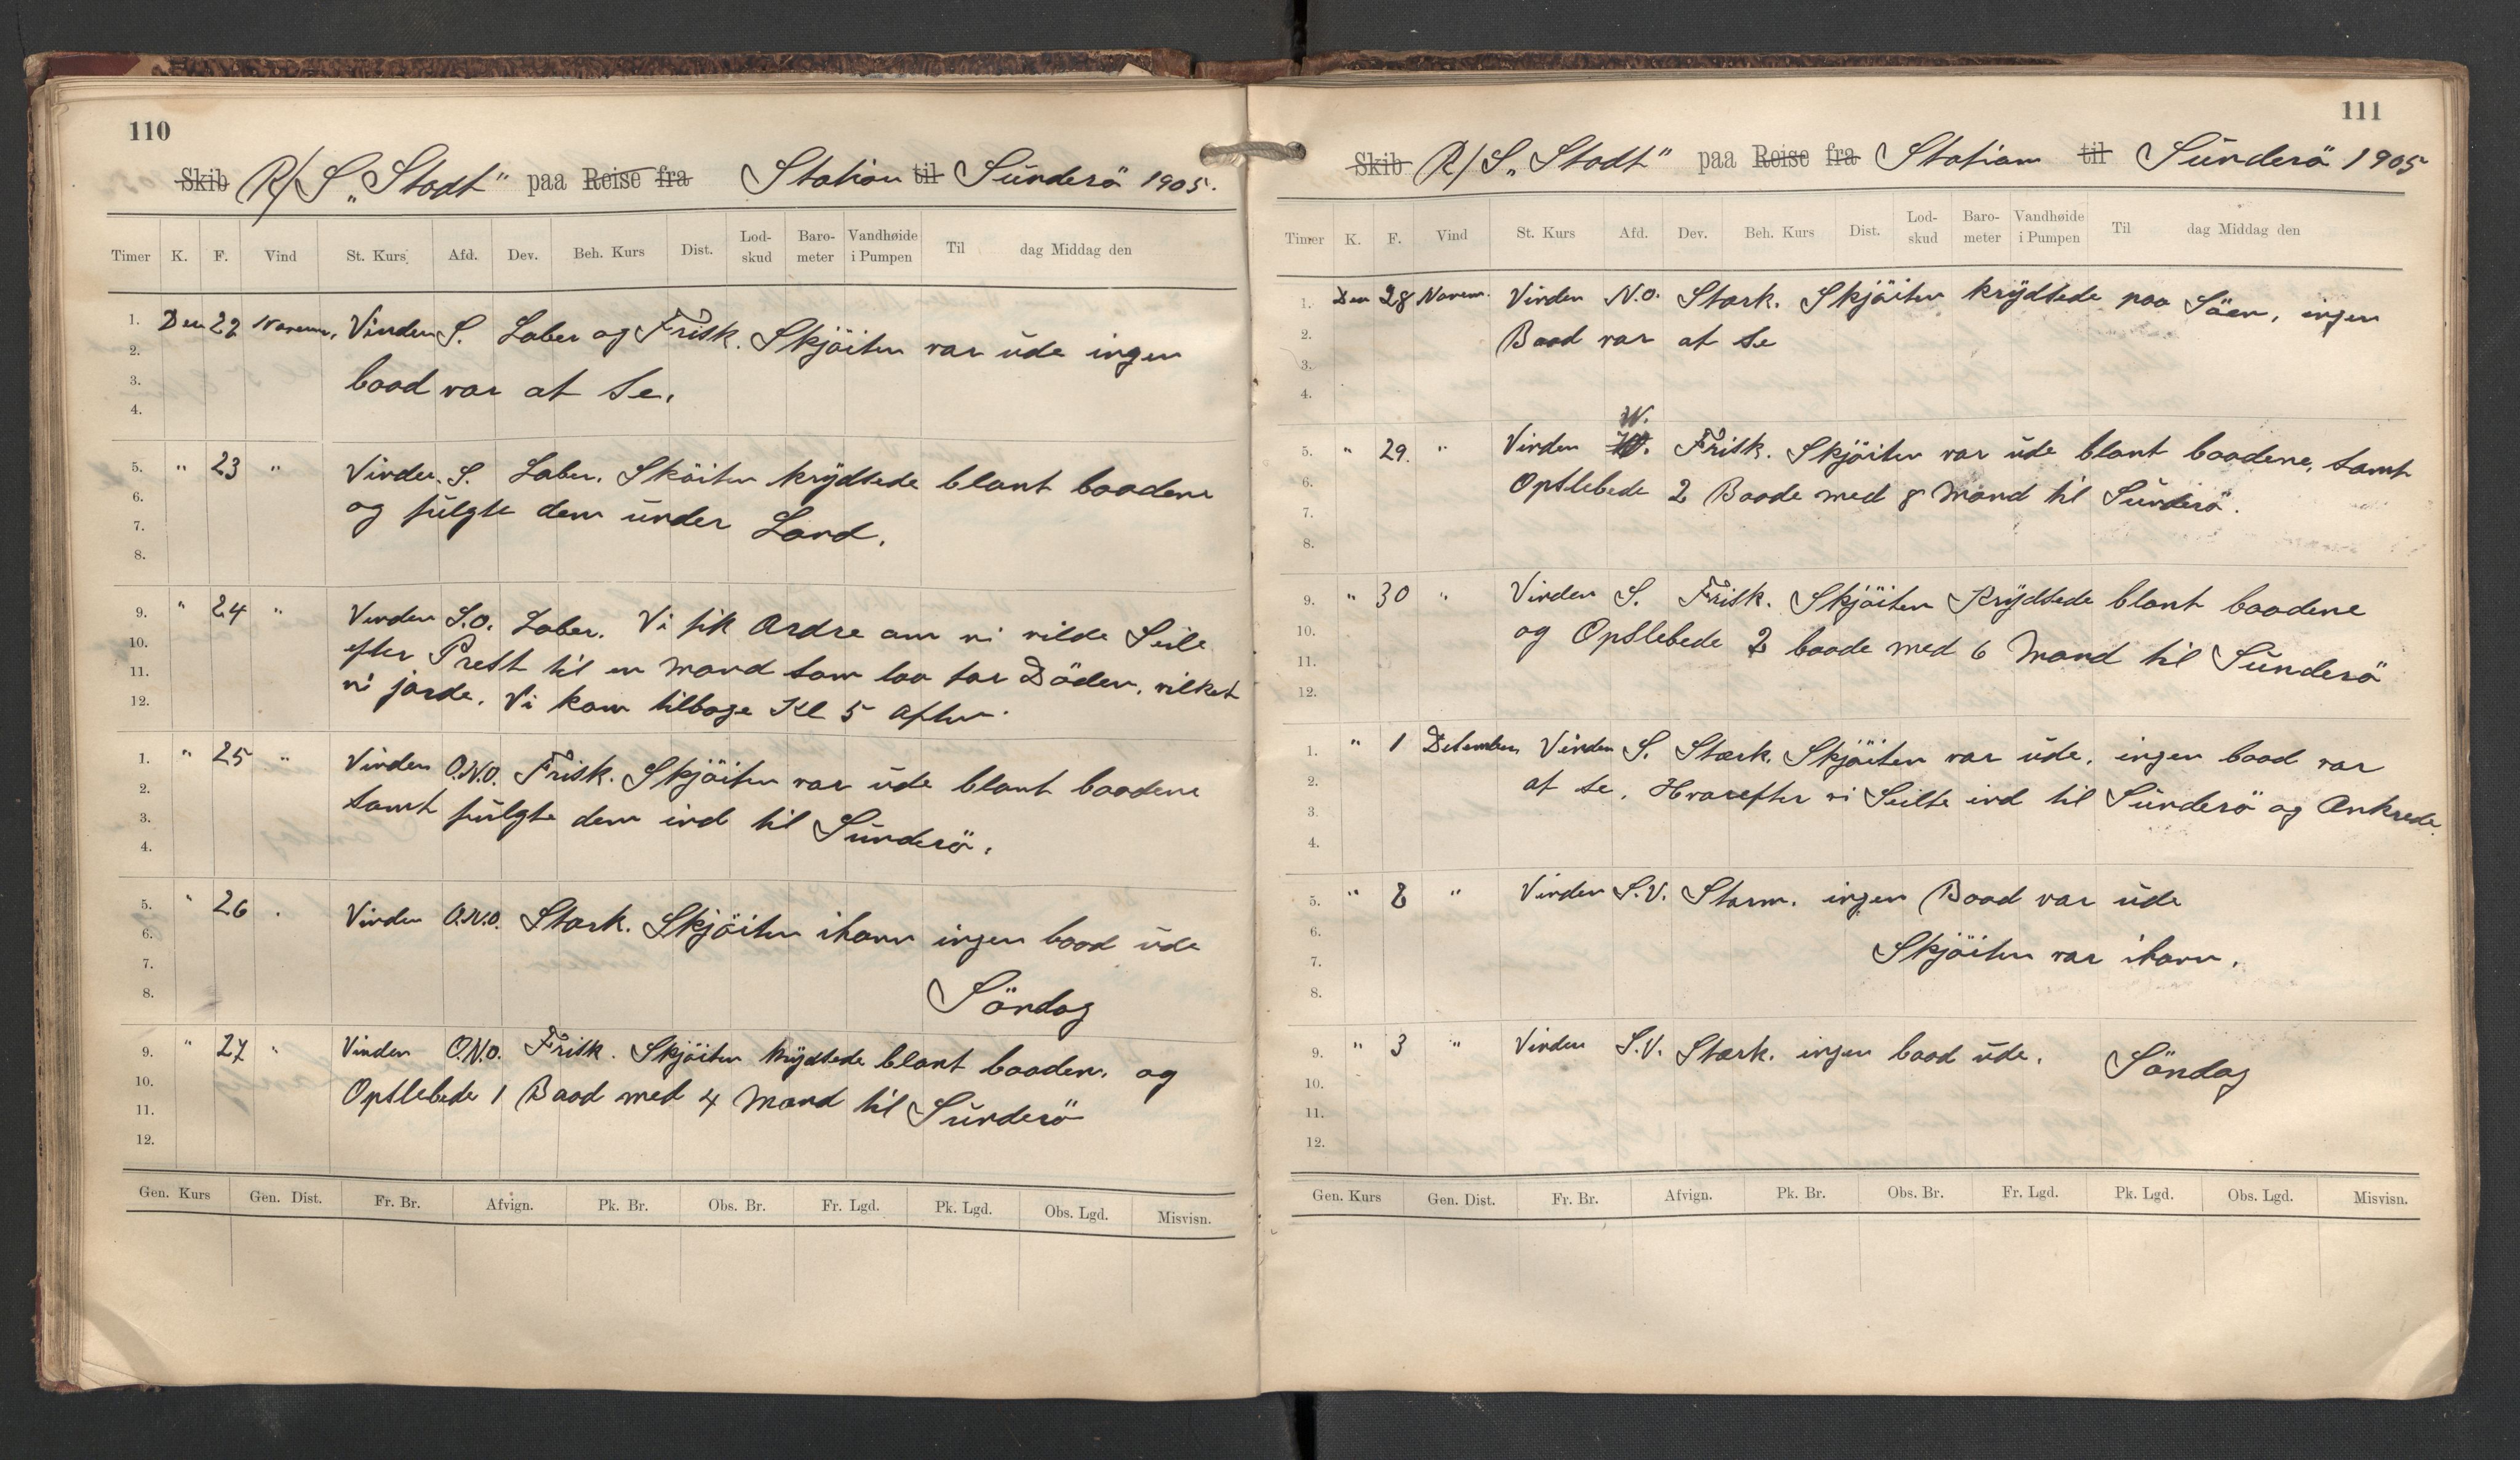 110
Skib R/S „Stadt" paa Reise fra Station til Sünderö 1905.
Timer K. F. Vind St. Kurs Afd. Dev. Beh. Kurs Dist. Lod-skud Baro-meter Vandhøide i Pumpen Til dag Middag den
1. Den 22 Novemr. Vinden S. Laber og Frisk. Skjöiten var ude ingen
2.
3. baad var at se.
4.
5. " 23 " Vinden S. Laber. Sköiten krydsede blant baadene
6. og fulgte dem under Land.
7.
8.
9. " 24 " Vinden S.O. Laber. Vi fik Ordre om vi vilde Seile
10. efter Prest til en Mand som laa for Döden, vilket
11. vi jorde. Vi kom tilbage Kl 5 Efter.
12.
1. " 25 " Vinden O.N.O. Frisk. Skjöiten var ude blant baadene
2. samt fulgte dem ind til Sünderö.
3.
4.
5. " 26 " Vinden O.N.O. Stærk. Skjöiten ihavn ingen baad ude
6.
7.
8. Söndag
9. " 27 " Vinden O.N.O. Frisk. Skjöiten krydsede blant baaden. og
10. Opslebede 1 Baad med 4 Mand til Sünderö
11.
12.
Gen. Kurs Gen. Dist. Fr. Br. Afvign. Pk. Br. Obs. Br. Fr. Lgd. Pk. Lgd. Obs. Lgd. Misvisn.
111
Skib R/S „Stadt" paa Reise fra Station til Sünderö 1905
Timer K. F. Vind St. Kurs Afd. Dev. Beh. Kurs Dist. Lod-skud Baro-meter Vandhøide i Pumpen Til dag Middag den
1. Den 28 Novem. Vinden N.O. Stærk. Skjöiten krydsede paa Söen, ingen
2. Baad var at se
3.
4.
W.
5. " 29. " Vinden Frisk. Skjöiten var ude blant baadene, samt
6. Opslebede 2 Baade med 8 Mand til Sünderö.
7.
8.
9. " 30 " Vinden S. Frisk. Skjöiten Krydsede blant baadene
10. og Opslebede 2 baade med 6 Mand til Sünderö
11.
12.
1. " 1 Desember Vinden S. Stærk. Skjöiten var ude. ingen baad var
2. at se. Hvorefter vi Seilte ind til Sünderö og Ankrede.
3.
4.
5. " 2 " Vinden S.V. Storm. ingen Baad var ude
6.
7. Skjöiten var ihavn.
8.
9. " 3 " Vinden S.V. Stærk. ingen baad ude. Söndag
10.
11.
12.
Gen. Kurs Gen. Dist. Fr. Br. Afvign. Pk. Br. Obs. Br. Fr. Lgd. Pk. Lgd. Obs. Lgd. Misvisn.